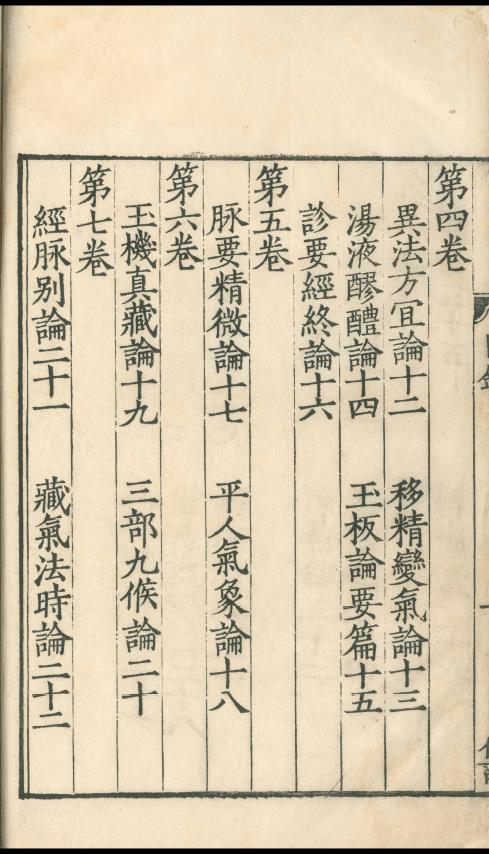 第四卷
異法方宜論十二　移精變氣論十三
湯液醪醴論十四　玉板論要篇十五
診要經終論十六
第五卷
脉要精微論十七　平人氣象論十八
第六卷
玉機真藏論十九　三部九候論二十
第七卷
經脉别論二十一　藏氣法時論二十二